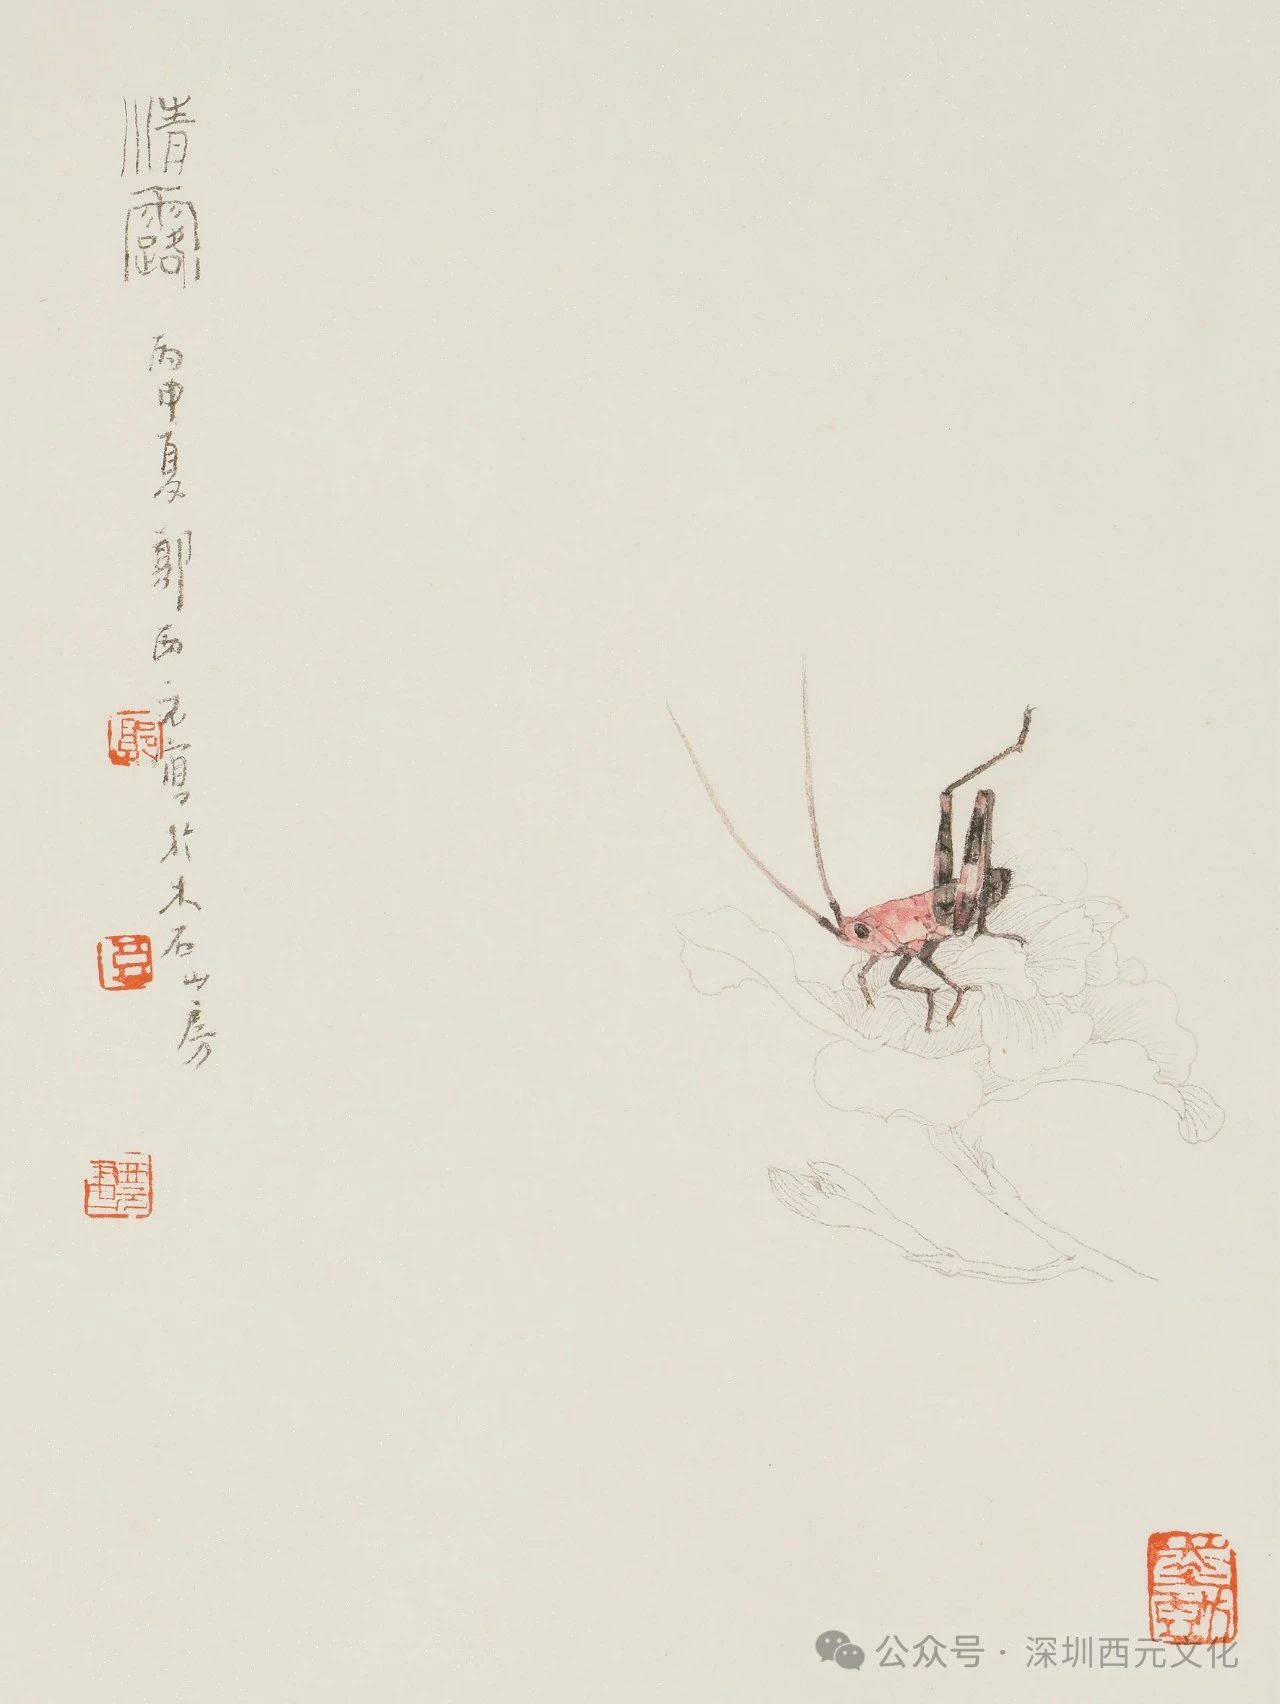 清露
丙申夏郭西元写於木石山房
郭
公众号 · 深圳西元文化